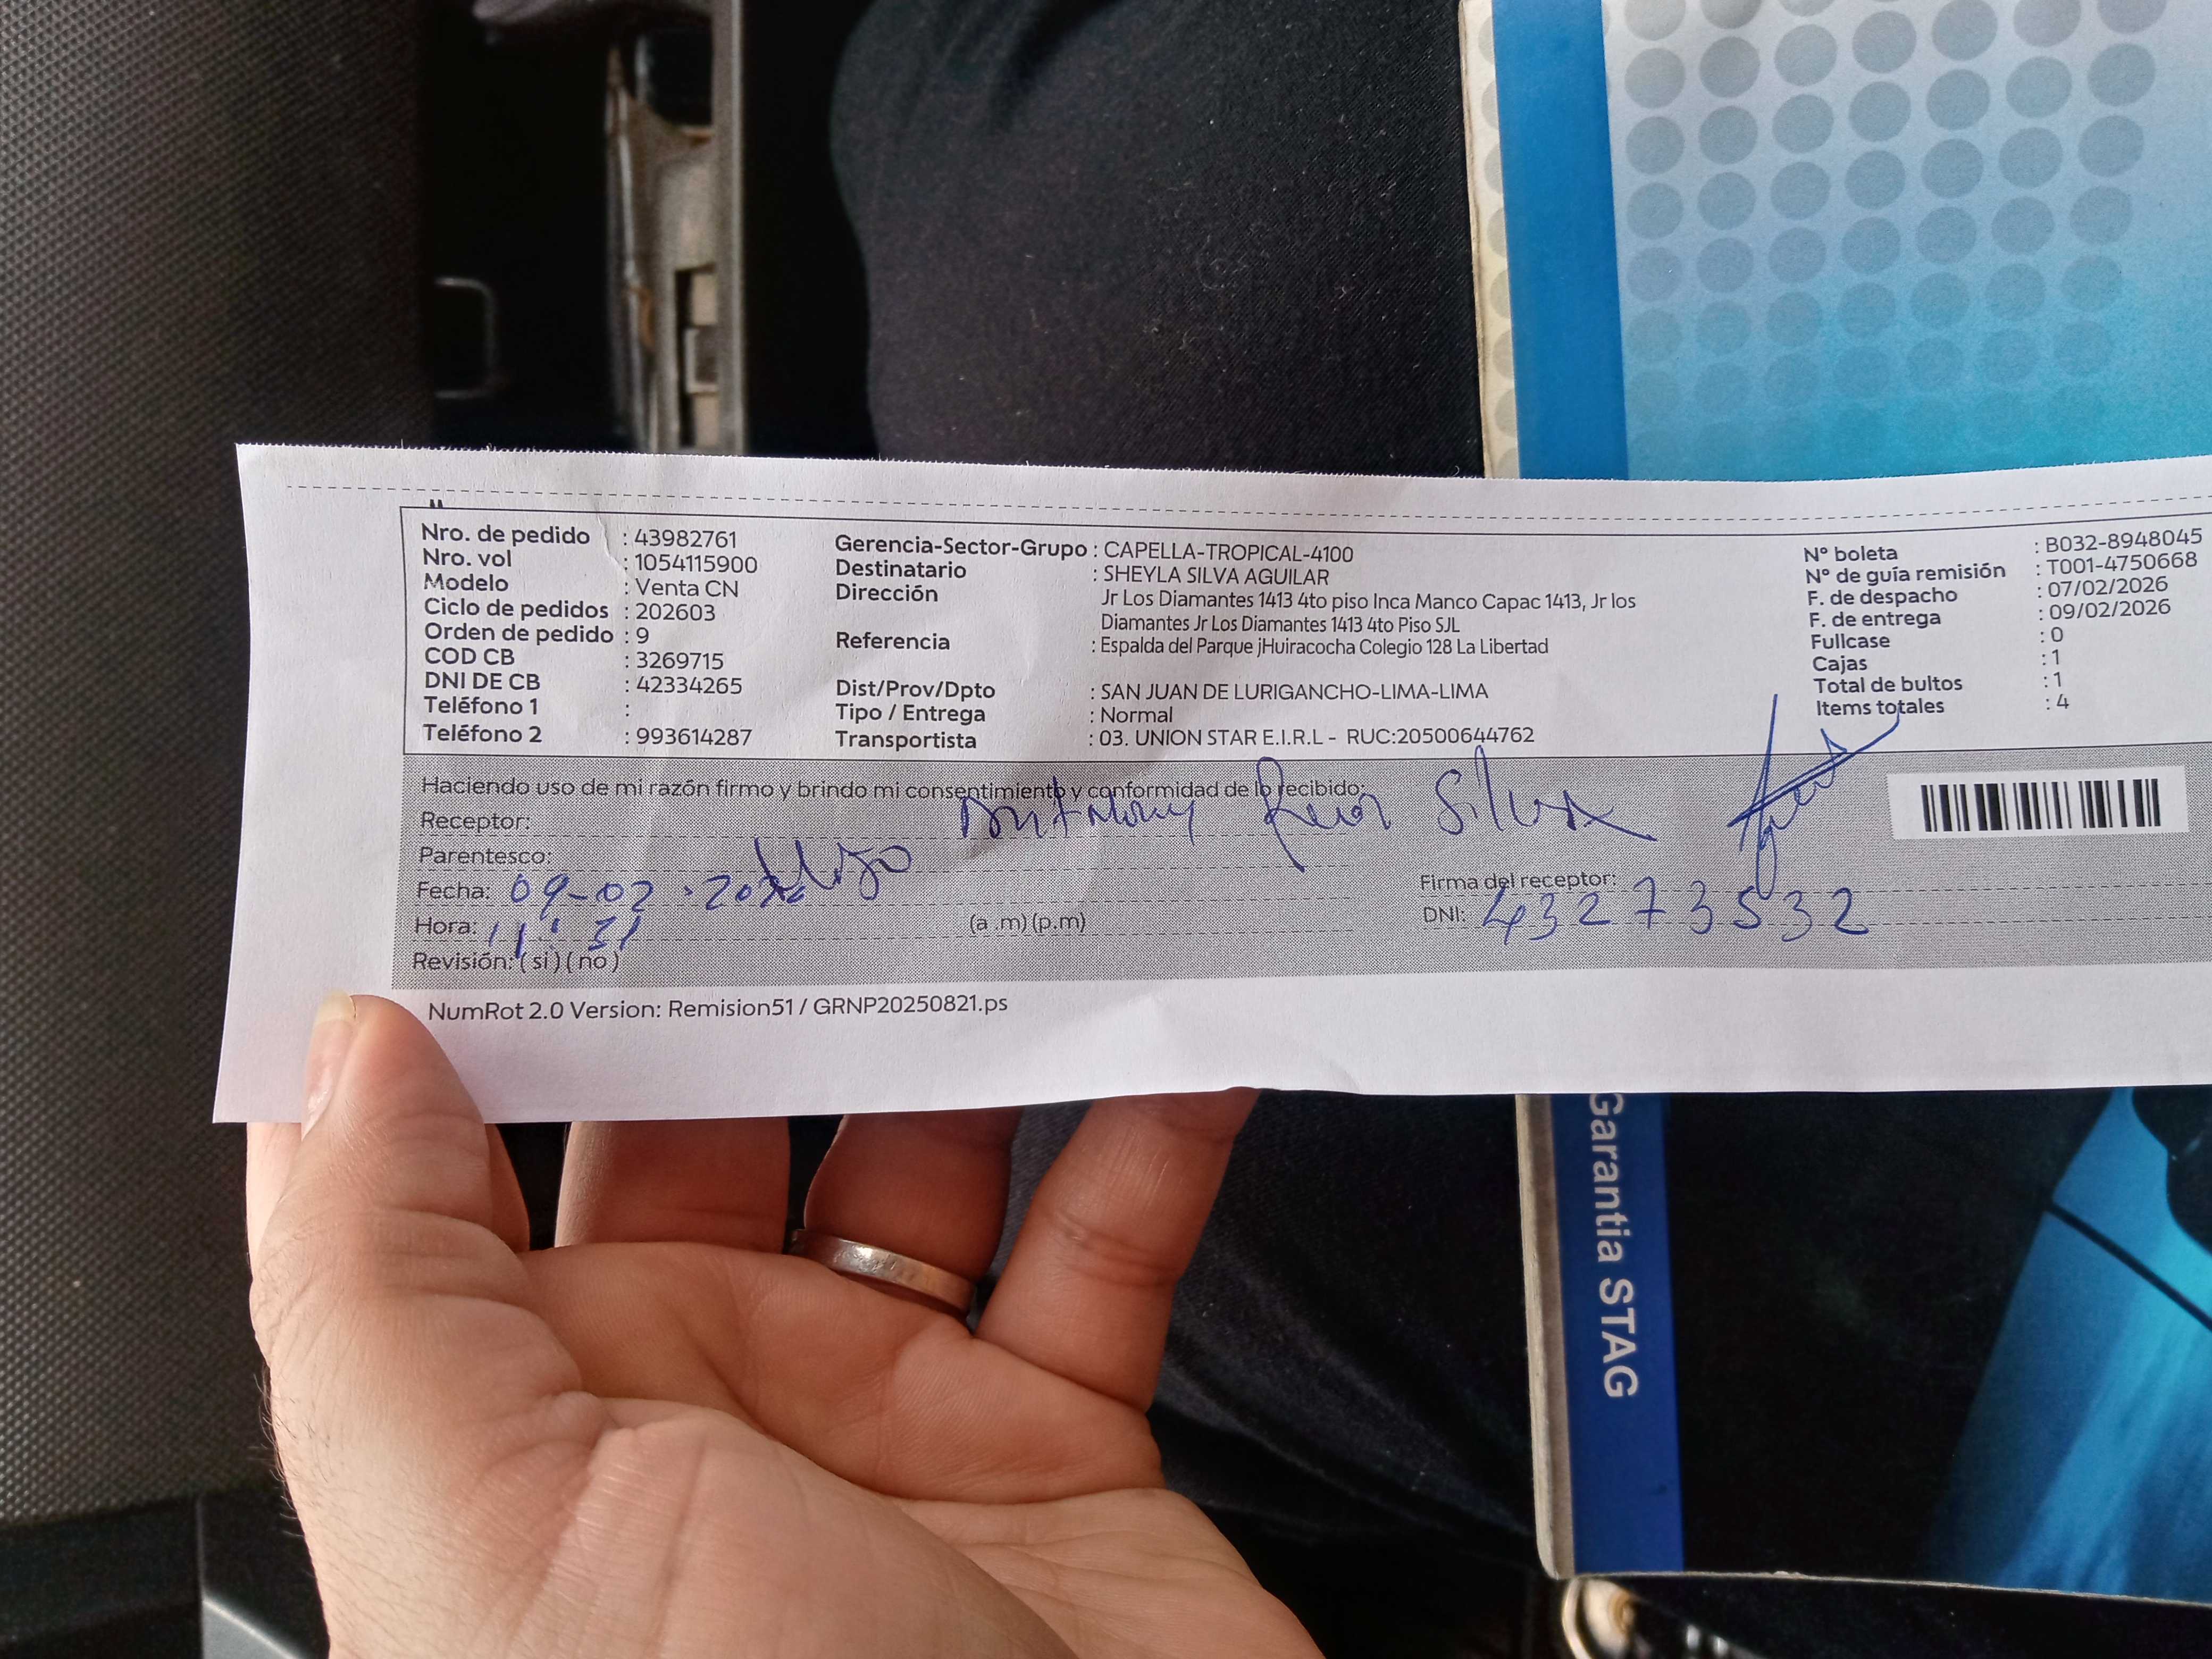 Nro. de pedido : 43982761
Nro. vol : 1054115900
Modelo : Venta CN
Ciclo de pedidos : 202603
Orden de pedido : 9
COD CB : 3269715
DNI DE CB : 42334265
Teléfono 1 :
Teléfono 2 : 993614287
Gerencia-Sector-Grupo : CAPELLA-TROPICAL-4100
Destinatario : SHEYLA SILVA AGUILAR
Dirección Jr Los Diamantes 1413 4to piso Inca Manco Capac 1413, Jr los
Diamantes Jr Los Diamantes 1413 4to Piso SJL
Referencia : Espalda del Parque jHuiracocha Colegio 128 La Libertad
Dist/Prov/Dpto : SAN JUAN DE LURIGANCHO-LIMA-LIMA
Tipo / Entrega : Normal
Transportista : 03. UNION STAR E.I.R.L - RUC:20500644762
N° boleta : B032-8948045
N° de guía remisión : T001-4750668
F. de despacho : 07/02/2026
F. de entrega : 09/02/2026
Fullcase : 0
Cajas : 1
Total de bultos : 1
Items totales : 4
Haciendo uso de mi razón firmo y brindo mi consentimiento y conformidad de lo recibido:
Receptor: Antony Silva
Parentesco: Hijo
Fecha: 09-02-2026
Hora: 11:31 (a .m) (p.m)
Revisión: ( si ) ( no )
Firma del receptor:
DNI: 43273532
NumRot 2.0 Version: Remision51 / GRNP20250821.ps
Garantia STAG